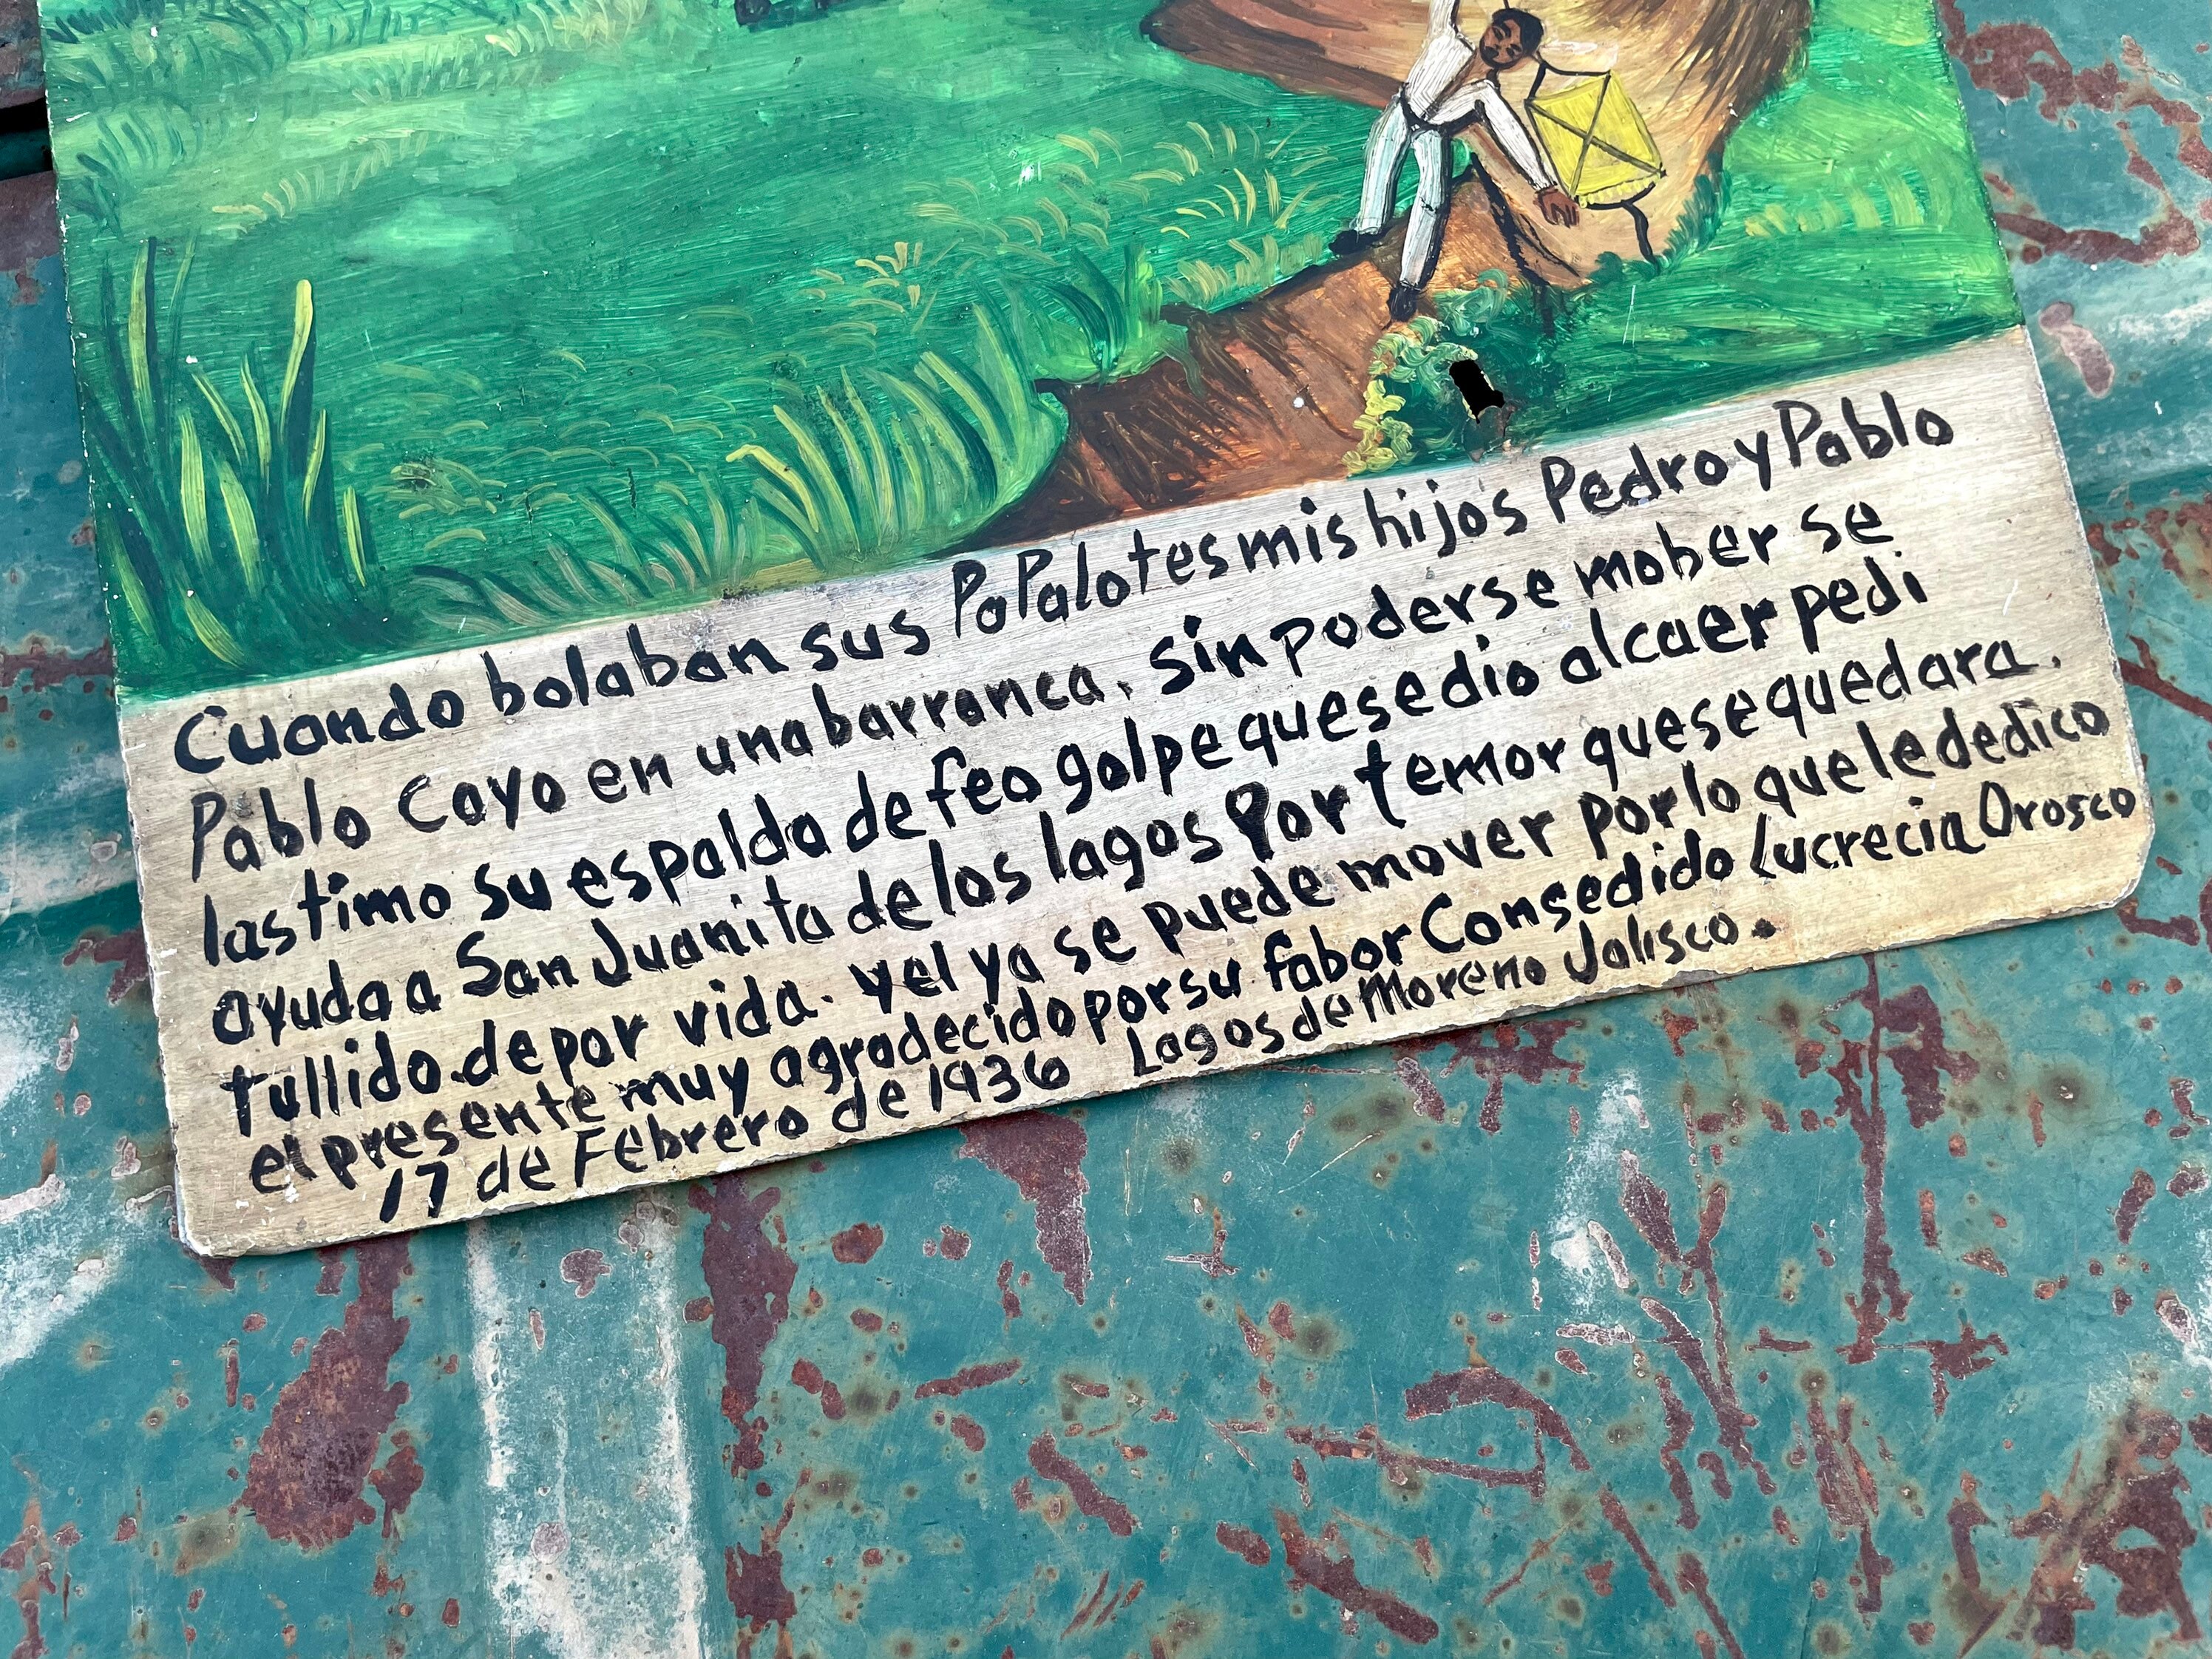 Cuando bolaban sus PaPalotes mis hijos Pedro y Pablo
Pablo Cayo en una barranca. Sin poderse mober se
lastimo su espalda de feo golpe que se dio al caer pedi
ayuda a San Juanita de los lagos Por temor que se quedara.
tullido de por vida. y el ya se puede mover por lo que le dedico
el presente muy agradecido por su fabor Consedido Lucrecia Orosco
17 de Febrero de 1936 Lagos de Moreno Jalisco.